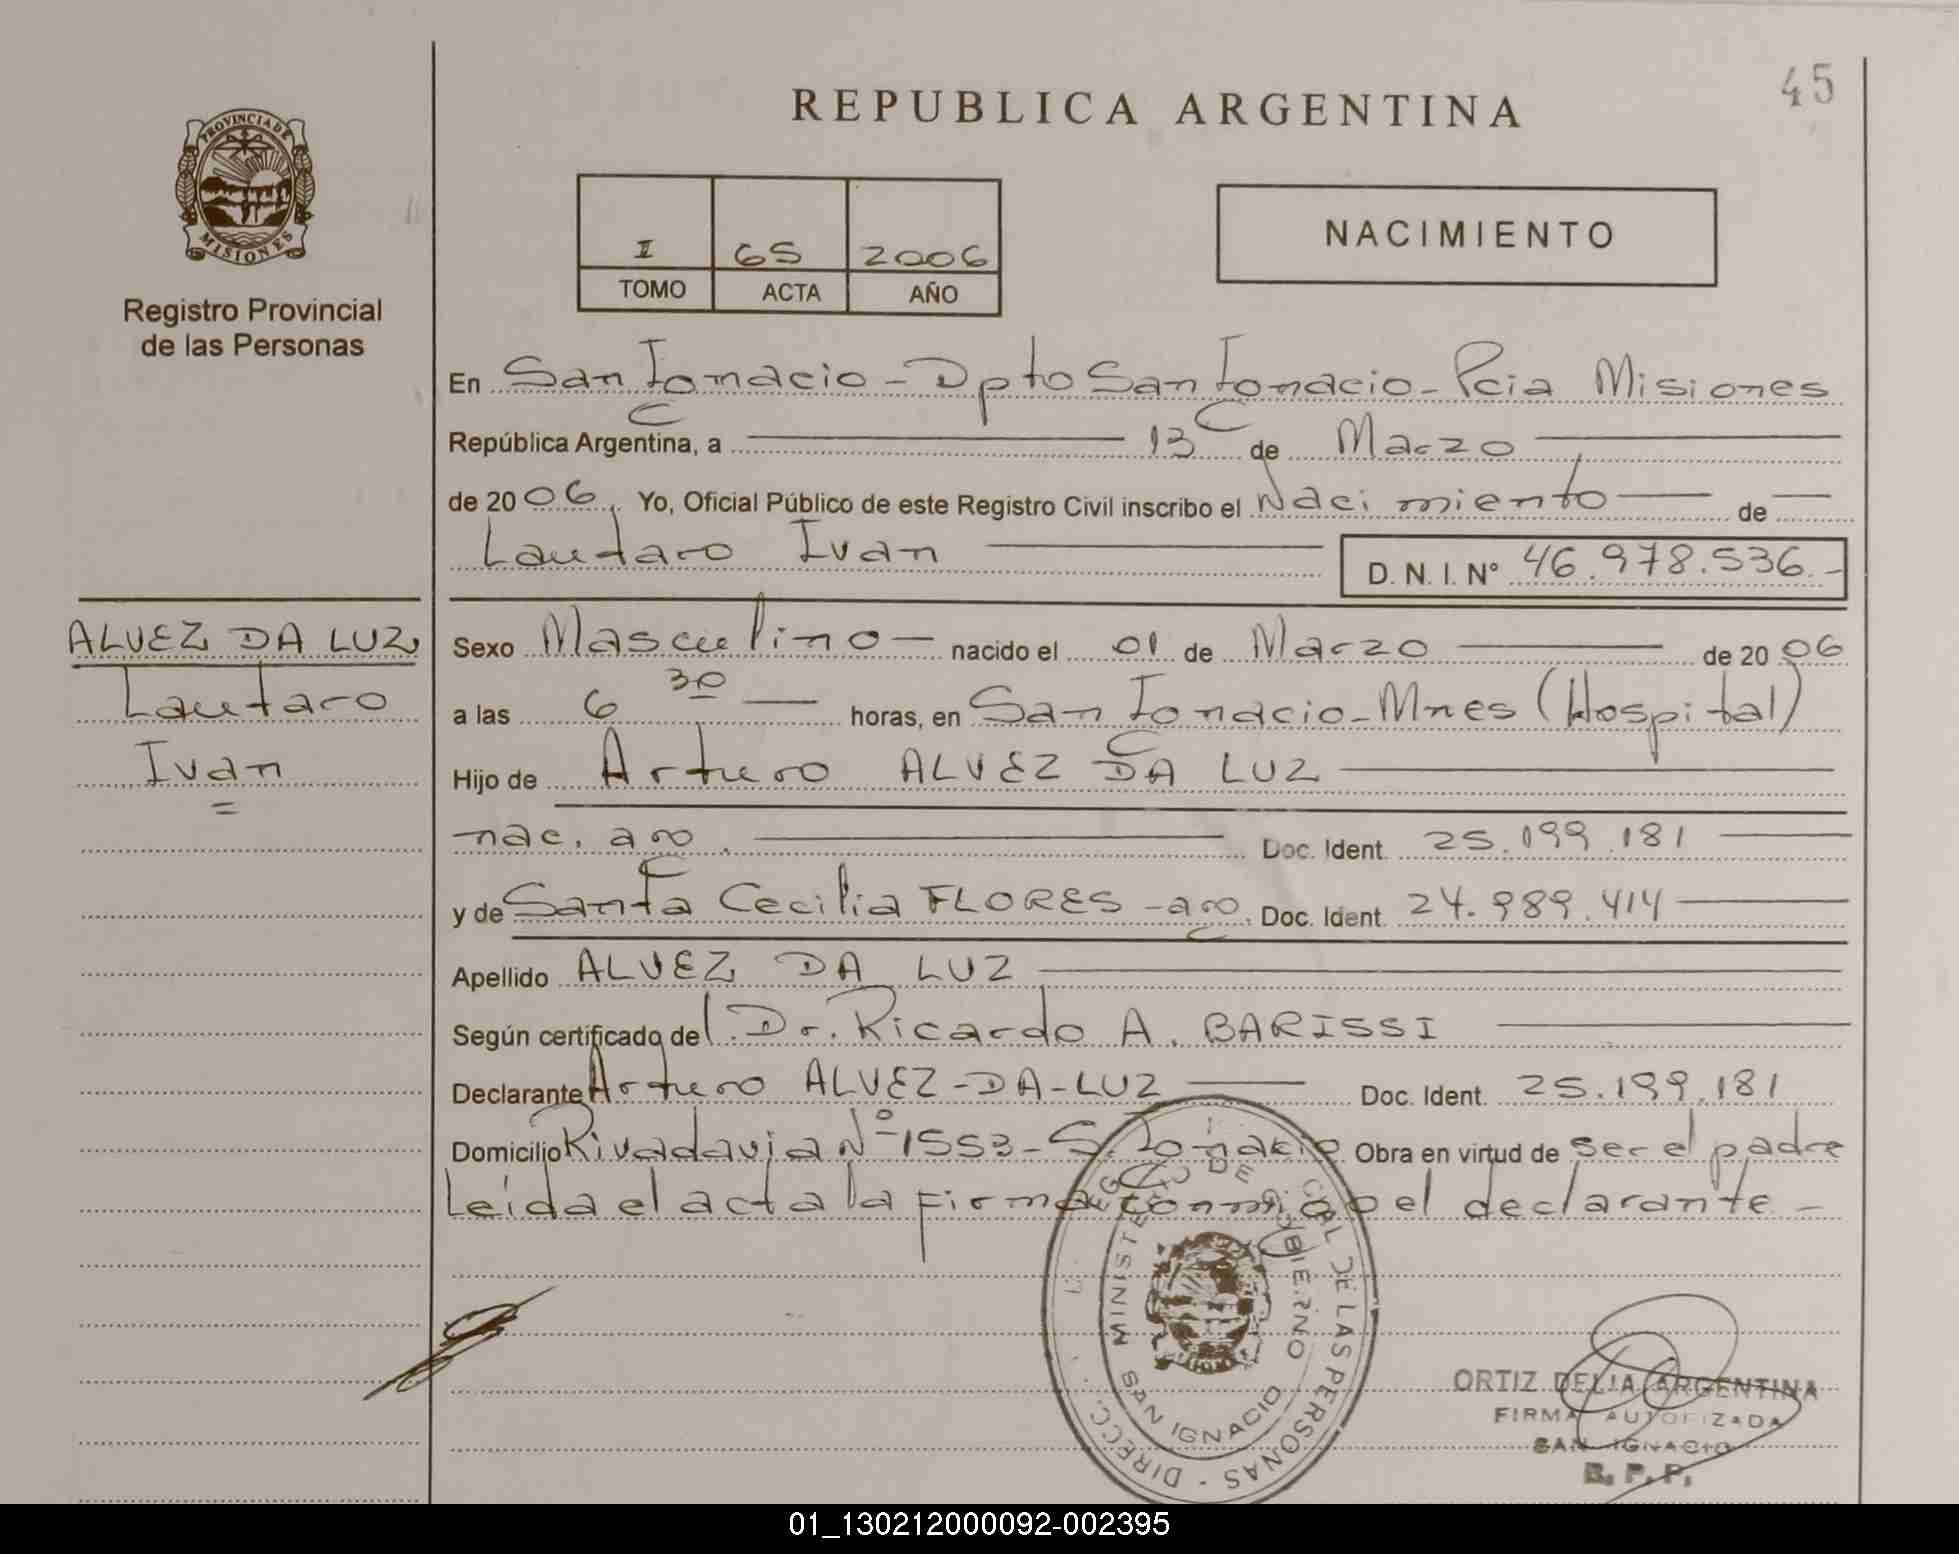 45
REPUBLICA ARGENTINA
PROVINCIA DE
MISIONES
Registro Provincial
de las Personas
I 65 2006
TOMO ACTA AÑO
NACIMIENTO
En San Ignacio - Dpto San Ignacio - Pcia Misiones
República Argentina, a 13 de Marzo
de 2006. Yo, Oficial Público de este Registro Civil inscribo el Nacimiento de
Lautaro Ivan D. N. I. N° 46.978.536.-
ALVEZ DA LUZ
Lautaro
Ivan
Sexo Masculino nacido el 01 de Marzo de 2006
a las 6 30 horas, en San Ignacio - Mnes (Hospital)
Hijo de Arturo ALVEZ DA LUZ
nac. arg. Doc. Ident. 25.199.181
y de Santa Cecilia FLORES - arg. Doc. Ident. 24.989.414
Apellido ALVEZ DA LUZ
Según certificado del Dr. Ricardo A. BARISSI
Declarante Arturo ALVEZ-DA-LUZ Doc. Ident. 25.199.181
Domicilio Rivadavia N° 1553 - S. Ignacio Obra en virtud de ser el padre
Leída el acta la firma conmigo el declarante -
MINISTERIO DE GOBIERNO
SAN IGNACIO
DE LAS PERSONAS - DIRECC.
ORTIZ DELIA ARGENTINA
FIRMA AUTORIZADA
SAN IGNACIO
R. P. P.
01_130212000092-002395